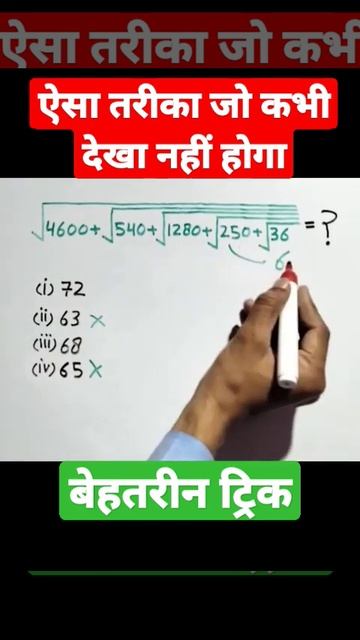 ऐसा तरीका जो कभी
ऐसा तरीका जो कभी
देखा नहीं होगा
√4600+√540+√1280+√250+√36 = ?
6
(i) 72
(ii) 63 ×
(iii) 68
(iv) 65 ×
बेहतरीन ट्रिक